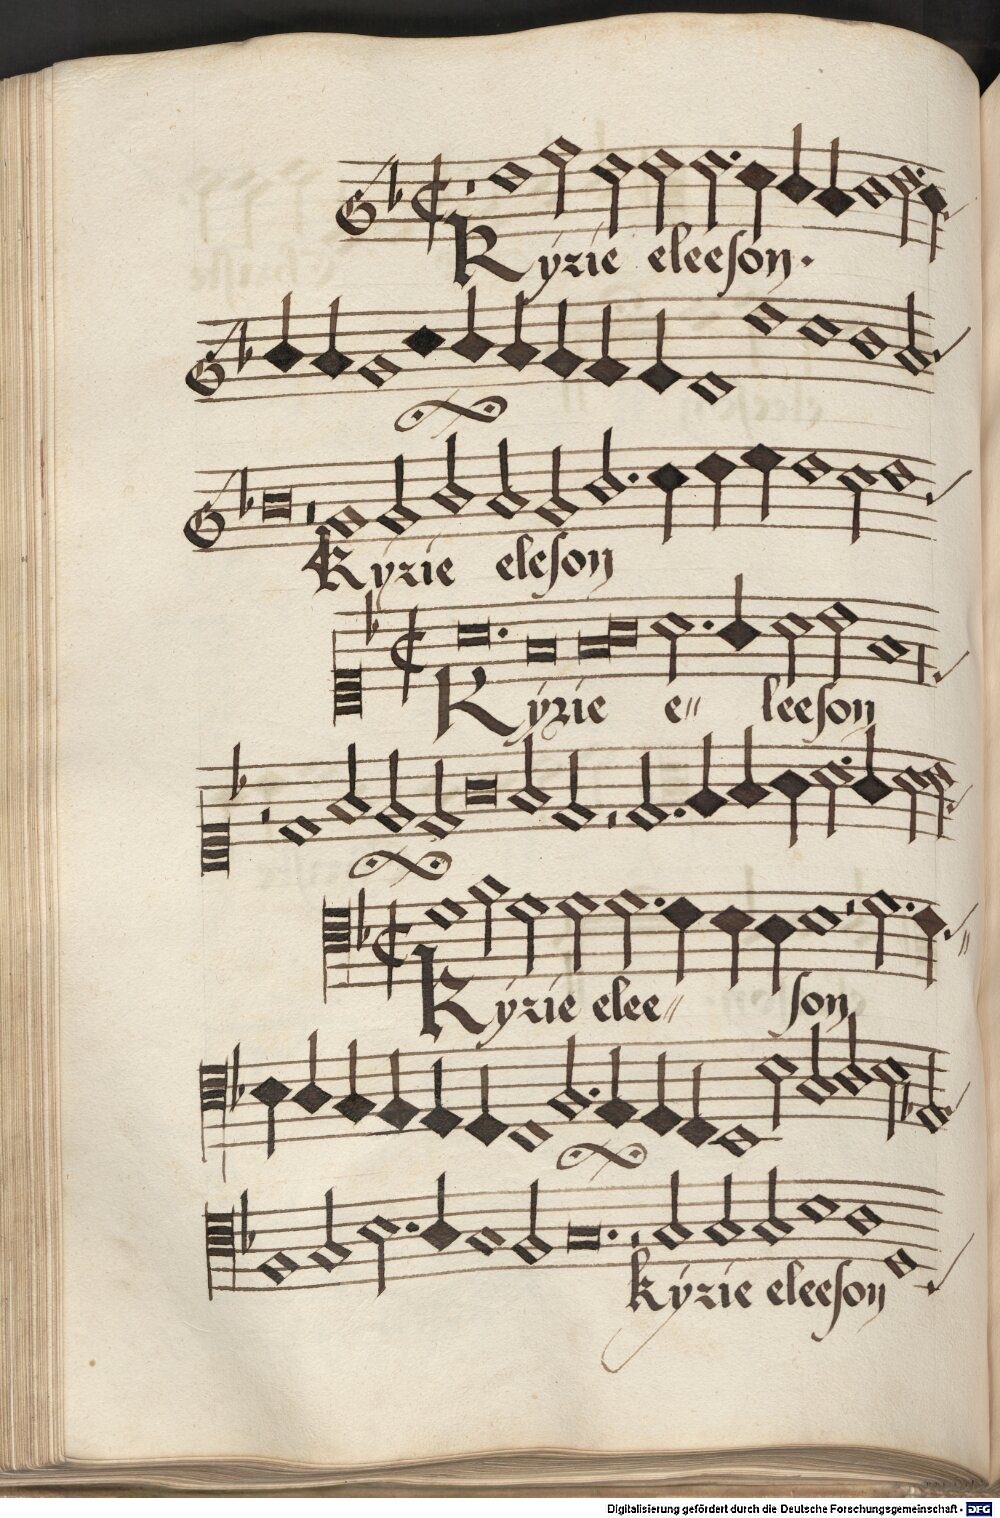 Kyrie eleeson.
Kyrie eleson
Kyrie e〃 leeson
Kyrie elee〃 son
kyrie eleeson
Digitalisierung gefördert durch die Deutsche Forschungsgemeinschaft - DFG